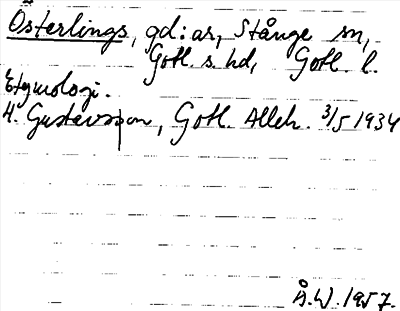 Österlings, gd:ar, Stånge sn,
Gotl. s. hd, Gotl. l.
Etymologi.
H. Gustavsson, Gotl. Alleh. 3/5 1934
Å.W. 1957.